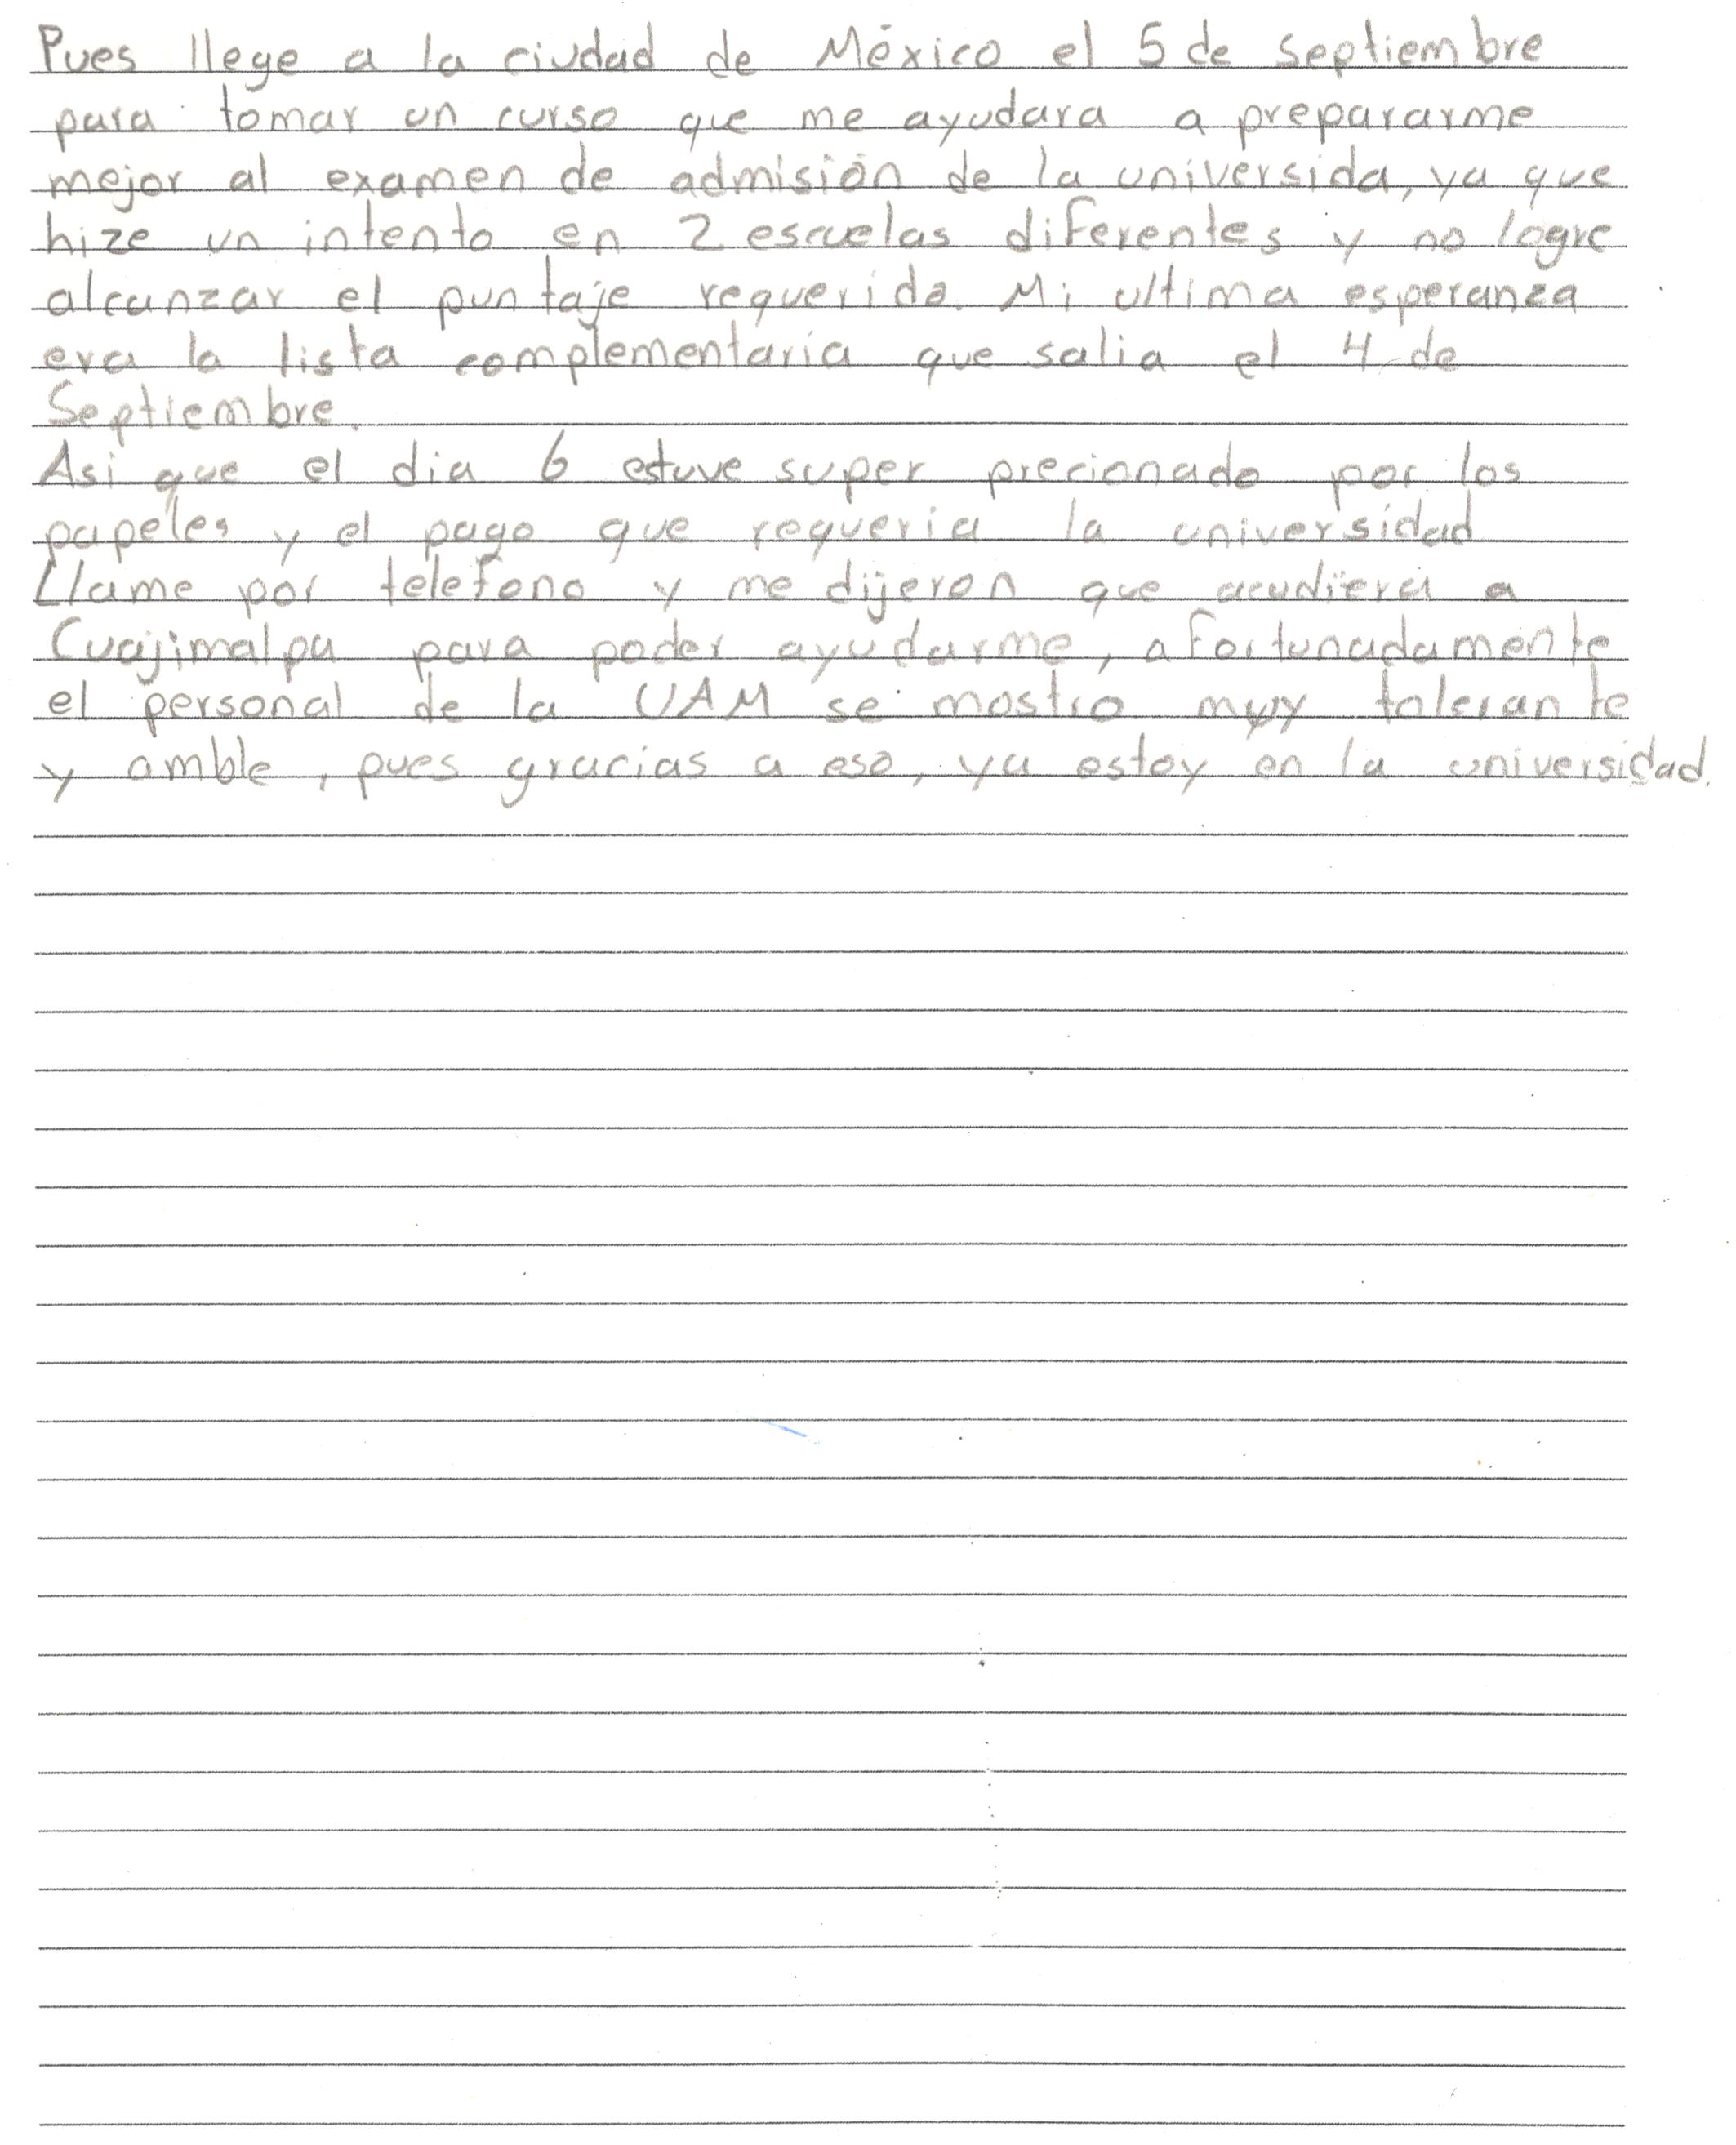 Pues llege a la ciudad de México el 5 de septiembre
para tomar un curso que me ayudara a prepararme
mejor al examen de admisión de la universida, ya que
hize un intento en 2 escuelas diferentes y no logre
alcanzar el puntaje requerido. Mi ultima esperanza
era la lista complementaria que salia el 4 de
Septiembre.
Asi que el dia 6 estuve super precionado por los
papeles y el pago que requeria la universidad
Llame por telefono y me dijeron que acudiera a
Cuajimalpa para poder ayudarme, afortunadamente
el personal de la UAM se mostro muy tolerante
y amble, pues gracias a eso, ya estoy en la universidad.